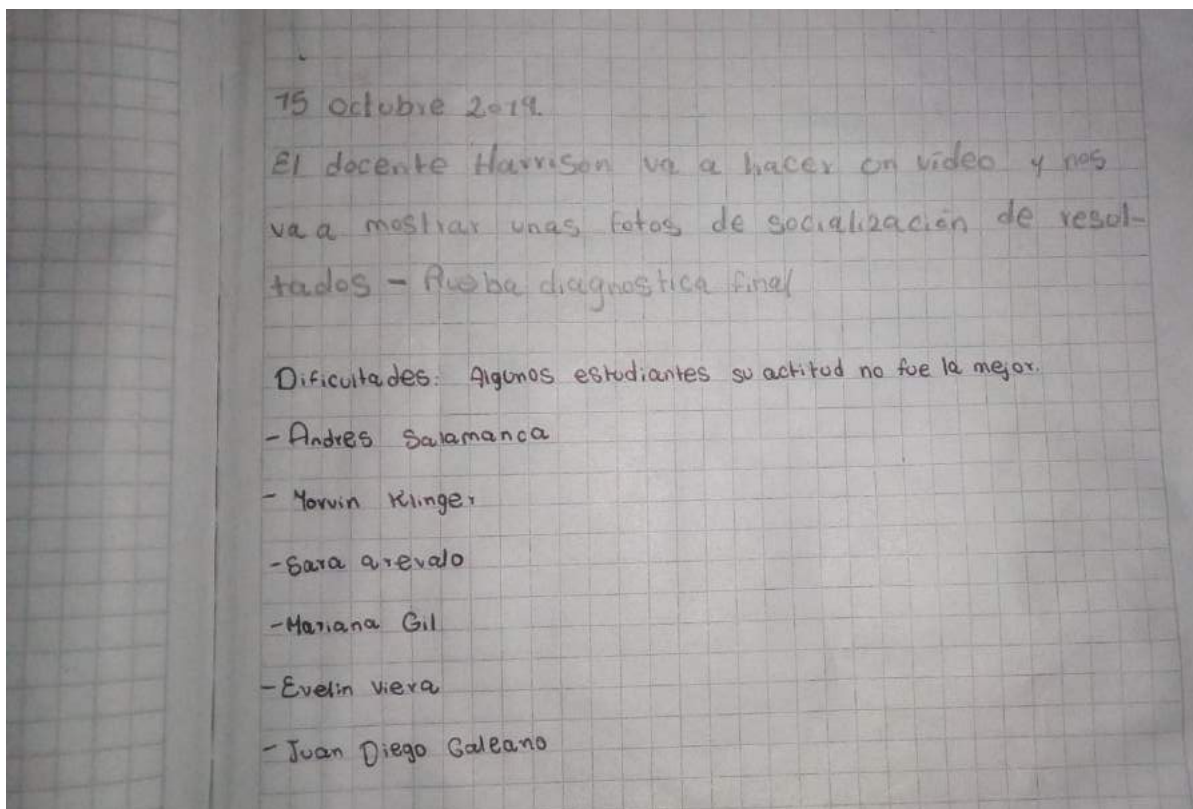 15 octubre 2019.
El docente Harrison va a hacer un video y nos
va a mostrar unas fotos de socialización de resul-
tados - Prueba diagnostica final
Dificultades: Algunos estudiantes su actitud no fue la mejor.
- Andres Salamanca
- Yorvin Klinger
- Sara arevalo
- Mariana Gil
- Evelin viera
- Juan Diego Galeano